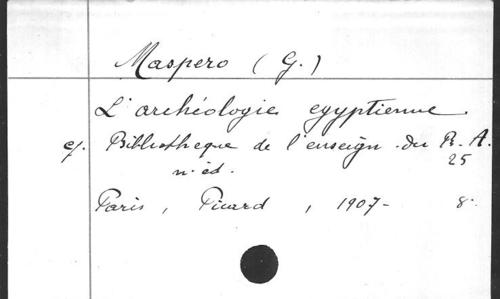 Maspero (G.)
L'archéologie egyptienne
cf. Bibliotheque de l'enseign. du B. A.
25
n. éd.
Paris, Picard, 1907- 8.